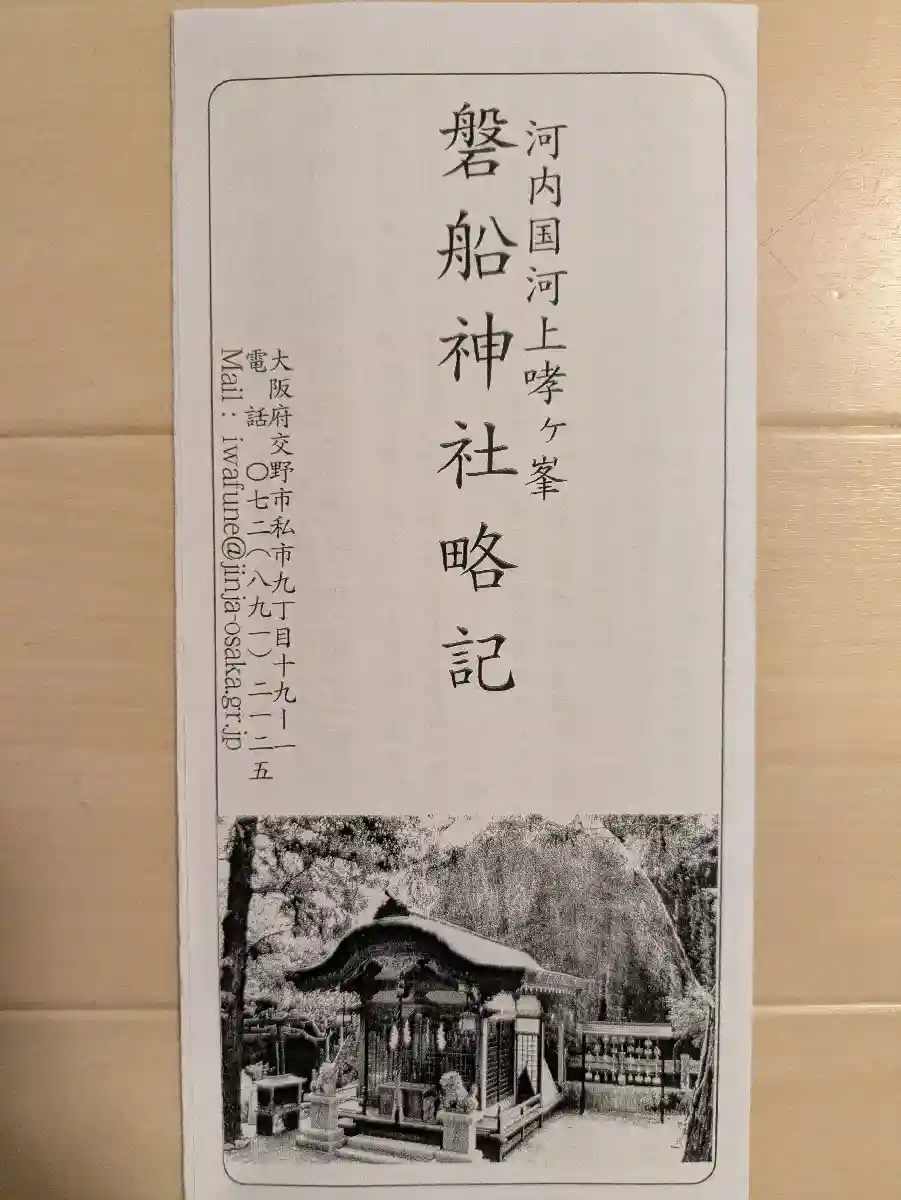 河内国河上哮ヶ峯
磐船神社略記
大阪府交野市私市九丁目十九ー一
電話 〇七二(八九一)二一二五
Mail : iwafune@jinja-osaka.gr.jp